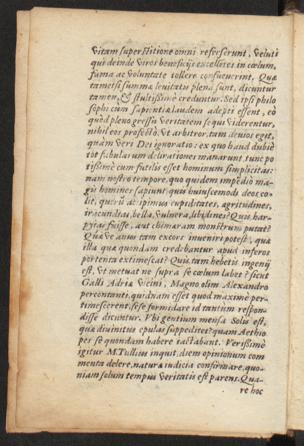 vitam superstitione omni referserunt, veluti
qui deinde viros beneficijs excellētes in cœlum,
fama ac voluntate tollere consueuerint. Quæ
tametsi summæ leuitatis plena sunt, dicuntur
tamen, & stultissimè creduntur. Sed ipsi philo
sophi cum sapientiæ laudem adepti essent, eò
quòd pleno gressu veritatem sequi viderentur,
nihil eos profectò, vt arbitror, tam deuios egit,
quàm veri Dei ignoratio: ex quo haud dubiè
tot fabularum delirationes manarunt, tunc po
tissimè cum facilis esset hominum simplicitas:
nam nostro tempore, quo quidem impēdio ma-
gis homines sapiunt, quis huiuscemodi deos co-
lit, querū ac ipsimus cupiditates, ægritudines,
iracundias, bella, vulnera, libidines? Quis har-
pyias fuisse, aut chimæram monstrum putat?
Quæ ve anus tam excors inueniri potest, quæ
illa quæ quondam credebantur apud inferos
portenta extimescat? Quis tam hebetis ingenij
est, vt metuat ne supra se cœlum labet? sicut
Galli Adriæ vicini, Magno olim Alexandro
percontanti, quidnam esset quod maximè per-
timescerent, sese formidare id tantùm respon-
disse dicuntur. Vbi gentium mensa Solis est,
quæ diuinitus epulas suppeditet? quam Aethio
pes se quondam habere iactabant. Verissimè
igitur M. Tullius inquit, diem opinionum com
menta delere, naturæ iudicia confirmare, quo-
niam solum tempus veritatis est parens. Qua-
re hoc